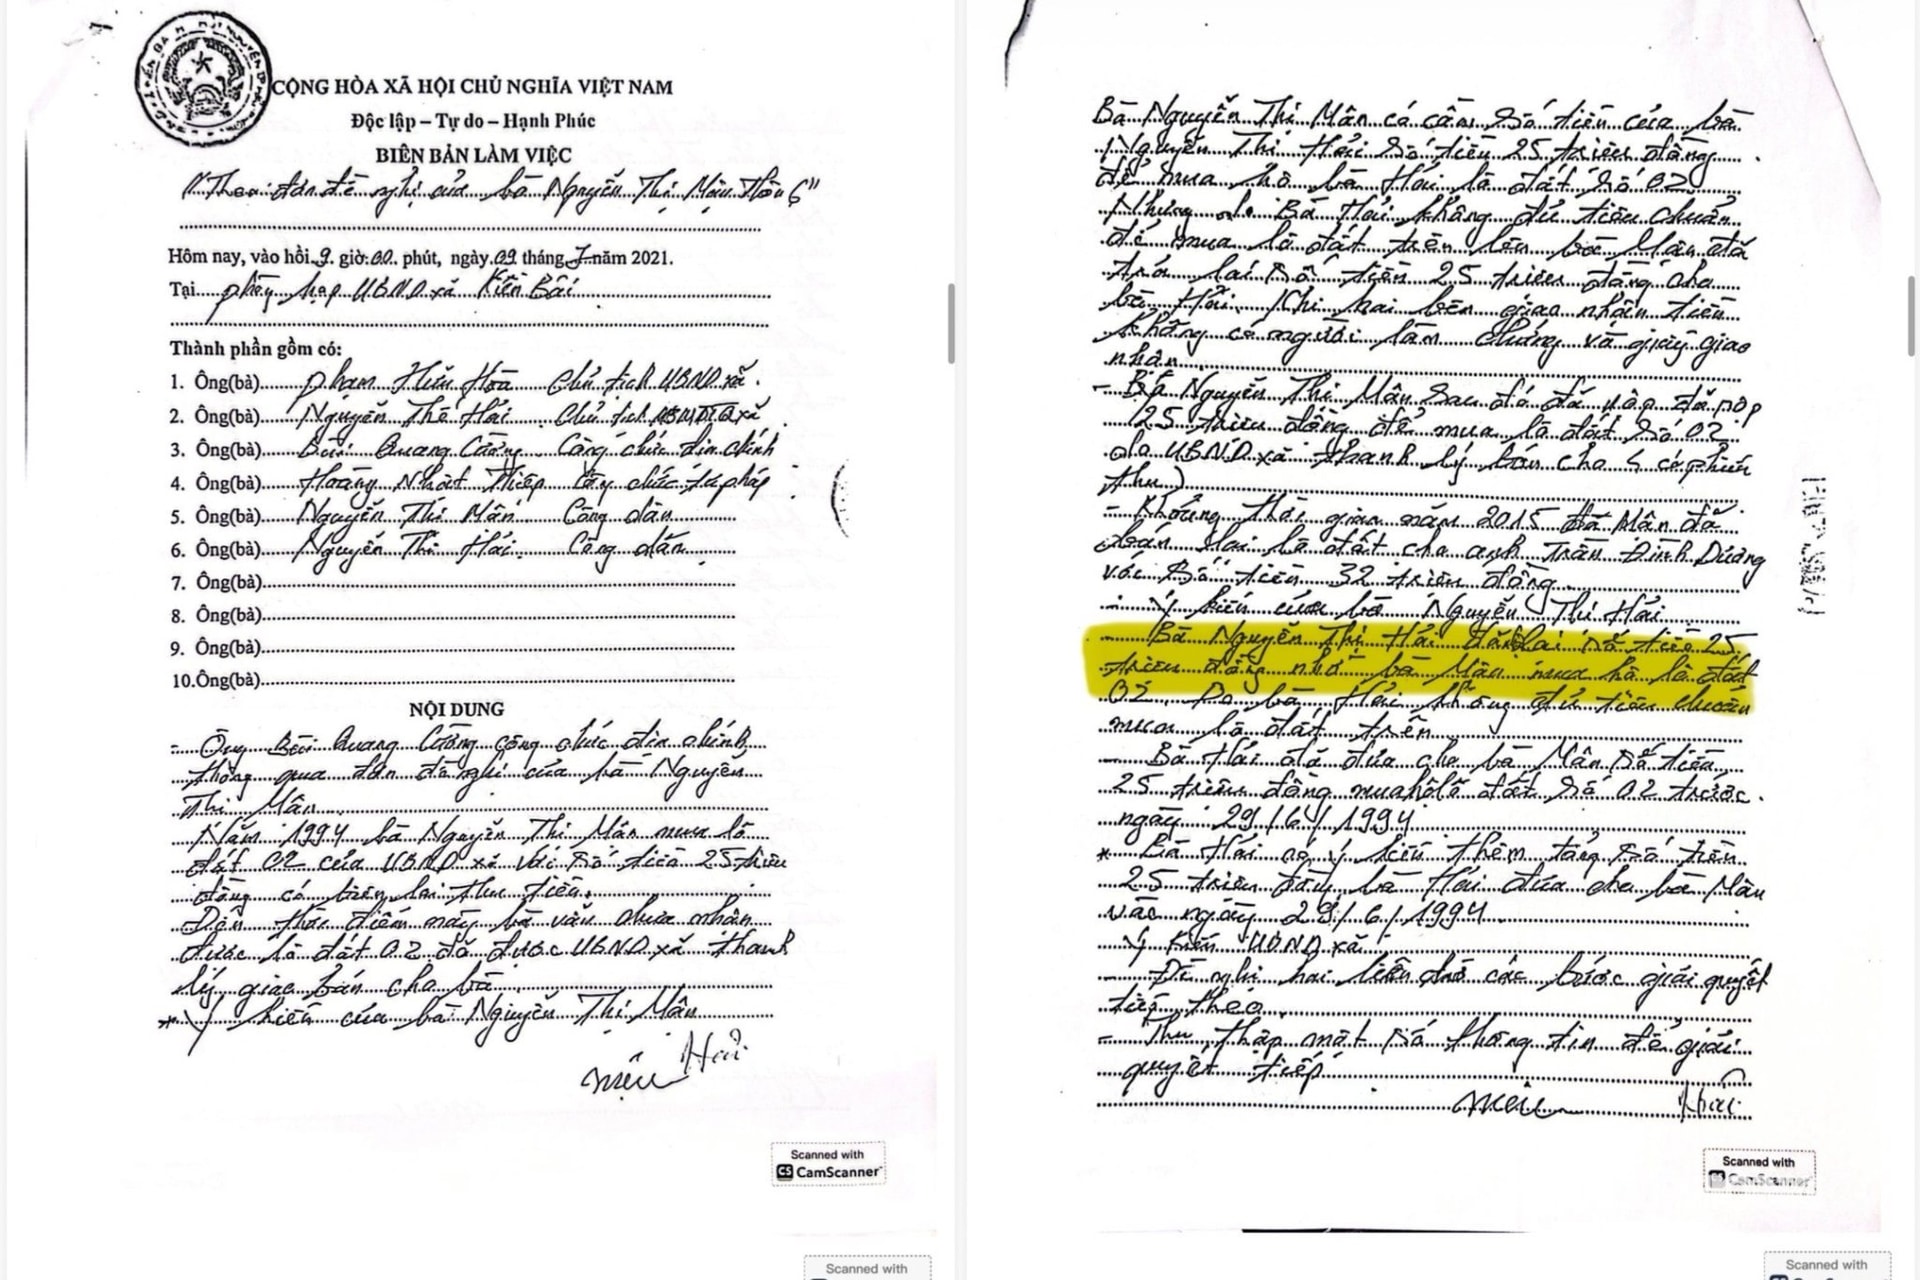 CỘNG HÒA XÃ HỘI CHỦ NGHĨA VIỆT NAM
Độc lập – Tự do – Hạnh Phúc
BIÊN BẢN LÀM VIỆC
"Theo đơn đề nghị của bà Nguyễn Thị Mận Thôn 6"
Hôm nay, vào hồi 9 giờ 00 phút, ngày 09 tháng 7 năm 2021.
Tại phòng họp UBND xã Kiền Bái
Thành phần gồm có:
1. Ông(bà) Phạm Hữu Hoà Chủ tịch UBND xã
2. Ông(bà) Nguyễn Thế Hải Chủ tịch xã
3. Ông(bà) Bùi Quang Cường Công chức địa chính
4. Ông(bà) Hoàng Nhật Thiệp Công chức tư pháp
5. Ông(bà) Nguyễn Thị Mận Công dân
6. Ông(bà) Nguyễn Thị Hải Công dân
7. Ông(bà)
8. Ông(bà)
9. Ông(bà)
10. Ông(bà)
NỘI DUNG
- Ông Bùi Quang Cường công chức địa chính
thông qua đơn đề nghị của bà Nguyễn
Thị Mận
Năm 1994 bà Nguyễn Thị Mận mua lô
đất 02 của UBND xã với số tiền 25 triệu
đồng có biên lai thu tiền.
Đến thời điểm này bà vẫn chưa nhận
được lô đất 02 đã được UBND xã thanh
lý giao bán cho bà
* Ý kiến của bà Nguyễn Thị Mận
Mận Hải
Scanned with
CS CamScanner
Scanned with
Bà Nguyễn Thị Mận có cầm số tiền của bà
Nguyễn Thị Hải số tiền 25 triệu đồng
để mua hộ bà Hải lô đất số 02
Nhưng do Bà Hải không đủ tiêu chuẩn
để mua lô đất trên lên bà Mận đã
trả lại số tiền 25 triệu đồng cho
bà Hải. Khi hai bên giao nhận tiền
không có người làm chứng và giấy giao
nhận
- Bà Nguyễn Thị Mận sau đó đã nộp đã nộp
25 triệu đồng để mua lô đất số 02
do UBND xã thanh lý bán cho có phiếu
thu)
- Khoảng thời gian năm 2015 bà Mận đã
bán lại lô đất cho anh Trần Đình Dương
với số tiền 32 triệu đồng
Ý kiến của bà Nguyễn Thị Hải
Bà Nguyễn Thị Hải lại số tiền 25
triệu đồng nhờ bà Mận mua hộ lô đất
02 Do bà Hải không đủ tiêu chuẩn
mua lô đất trên
Bà Hải đã đưa cho bà Mận số tiền
25 triệu đồng mua hộ lô đất số 02 trước
ngày 29/6/1994
* Bà Hải có ý kiến thêm tổng số tiền
25 triệu đồng bà Hải đưa cho bà Mận
vào ngày 29/6/1994
Ý kiến UBND xã
Đề nghị hai bên chờ các bước giải quyết
tiếp theo
- Thu thập một số thông tin để giải
quyết tiếp
Mận Hải
Scanned with
CamScanner
Scanned with